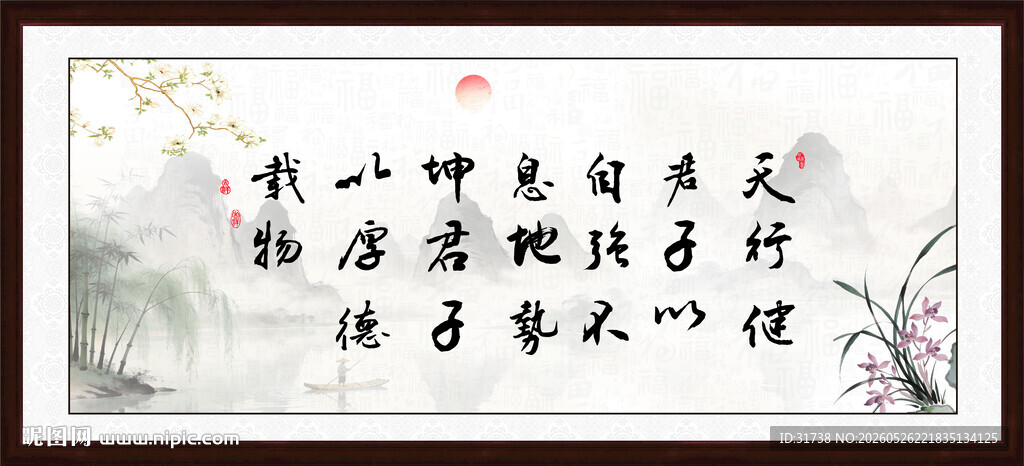 天行健
君子以
自强不
息地势
坤君子
以厚德
载物
昵图网 www.nipic.com
ID:31738 NO:20260526221835134125